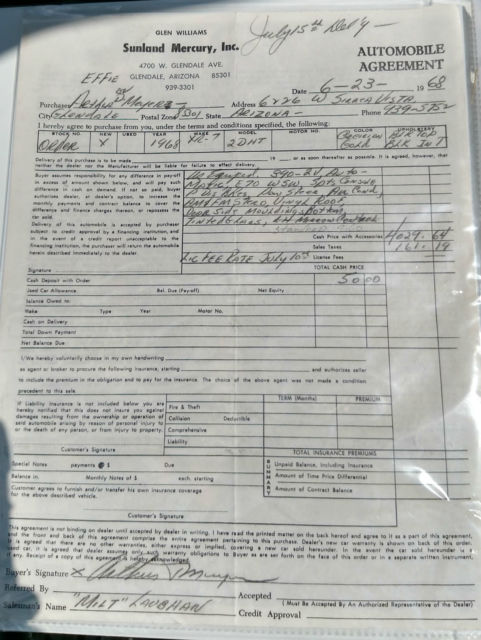 July 15th Del'y -
GLEN WILLIAMS
Sunland Mercury, Inc.
4700 W. GLENDALE AVE.
GLENDALE, ARIZONA 85301
939-3301
AUTOMOBILE
AGREEMENT
EFFIE
or
Date 6-23- 1968
Purchaser Address 6226 W
City GLENDALE Postal Zone 5301 State ARIZONA - Phone 939-5752
I hereby agree to purchase from you, under the terms and conditions specified, the following:
STOCK NO. NEW USED YEAR MAKE MODEL MOTOR NO. COLOR UPHOLSTERY
ORDER X 1968 XR-7 2DHT Gold BLK Top BLK INT
Delivery of this purchase is to be made 19 or as soon thereafter as possible. It is agreed, however, that
neither the dealer nor the Manufacturer will be liable for failure to effect delivery.
Buyer assumes responsibility for any difference in pay-off
in excess of amount shown below, and will pay such
difference in cash on demand, or so paid, buyer
authorizes dealer, at dealer's option, to increase the
monthly payments and contract balance to cover such
difference and finance charges thereon, or repossess the
car sold.
Delivery of this automobile is accepted by purchaser
subject to credit approval by a financing institution, and
in the event of a credit report unacceptable to the
financing institution, the purchaser will return the automobile
herein described immediately to the dealer.
As Equiped. 390-2V Auto-
Matic, E70 WSW, Spts Console
P Steer Air Cond,
AM/FM Stereo, Vinyl Roof,
Door Side Moulding,
Tinted Glass,
Cash Price with Accessories 4029.64
Sales Taxes 161.19
Lic Fee Rate July 1st License Fees
TOTAL CASH PRICE
Signature
Cash Deposit with Order 50 00
Used Car Allowance Bal. Due (Pay-off) Net Equity
Balance Owed to:
Make Type Year Motor No.
Cash on Delivery
Total Down Payment
Net Balance Due
I/We hereby voluntarily choose in my own handwriting
as agent or broker to procure the following insurance, starting and authorizes seller
to include the premium in the obligation and to pay for the insurance. The choice of the above agent was not made a condition
precedent to this sale.
TERM (Months) PREMIUM
If Liability Insurance is not included below you are
hereby notified that this does not insure you against
damages resulting from the ownership or operation of
said automobile arising by reason of personal injury to
or the death of any person, or from injury to property.
Fire & Theft
Collision Deductible
Comprehensive
Liability
Customer's Signature
TOTAL INSURANCE PREMIUMS
Special Notes payments @ $ Due
Balance in. Monthly Notes of $ each, starting
Customer agrees to furnish and/or transfer his own insurance coverage
for the above described vehicle.
SUMMARY
Unpaid Balance, including Insurance
Amount of Time Price Differential
Amount of Contract Balance
Customer's Signature
This agreement is not binding on dealer until accepted by dealer in writing. I have read the printed matter on the back hereof and agree to it as a part of this agreement,
and the front and back of this agreement comprise the entire agreement pertaining to this purchase. Dealer's new car warranty is shown on back of this order.
It is agreed that there are no other warranties, either express or implied, covering a new car sold hereunder. In the event the car sold hereunder is a
used car, it is agreed that dealer assumes only such warranty obligations to Buyer as are set forth on the face of this order or in a separate written instrument,
if any. Receipt of a copy of this agreement is hereby acknowledged.
Buyer's Signature X
Referred By
Salesman's Name "MILT" LAUGHAN
Accepted
(Must Be Accepted By An Authorized Representative of the Dealer)
Credit Approval